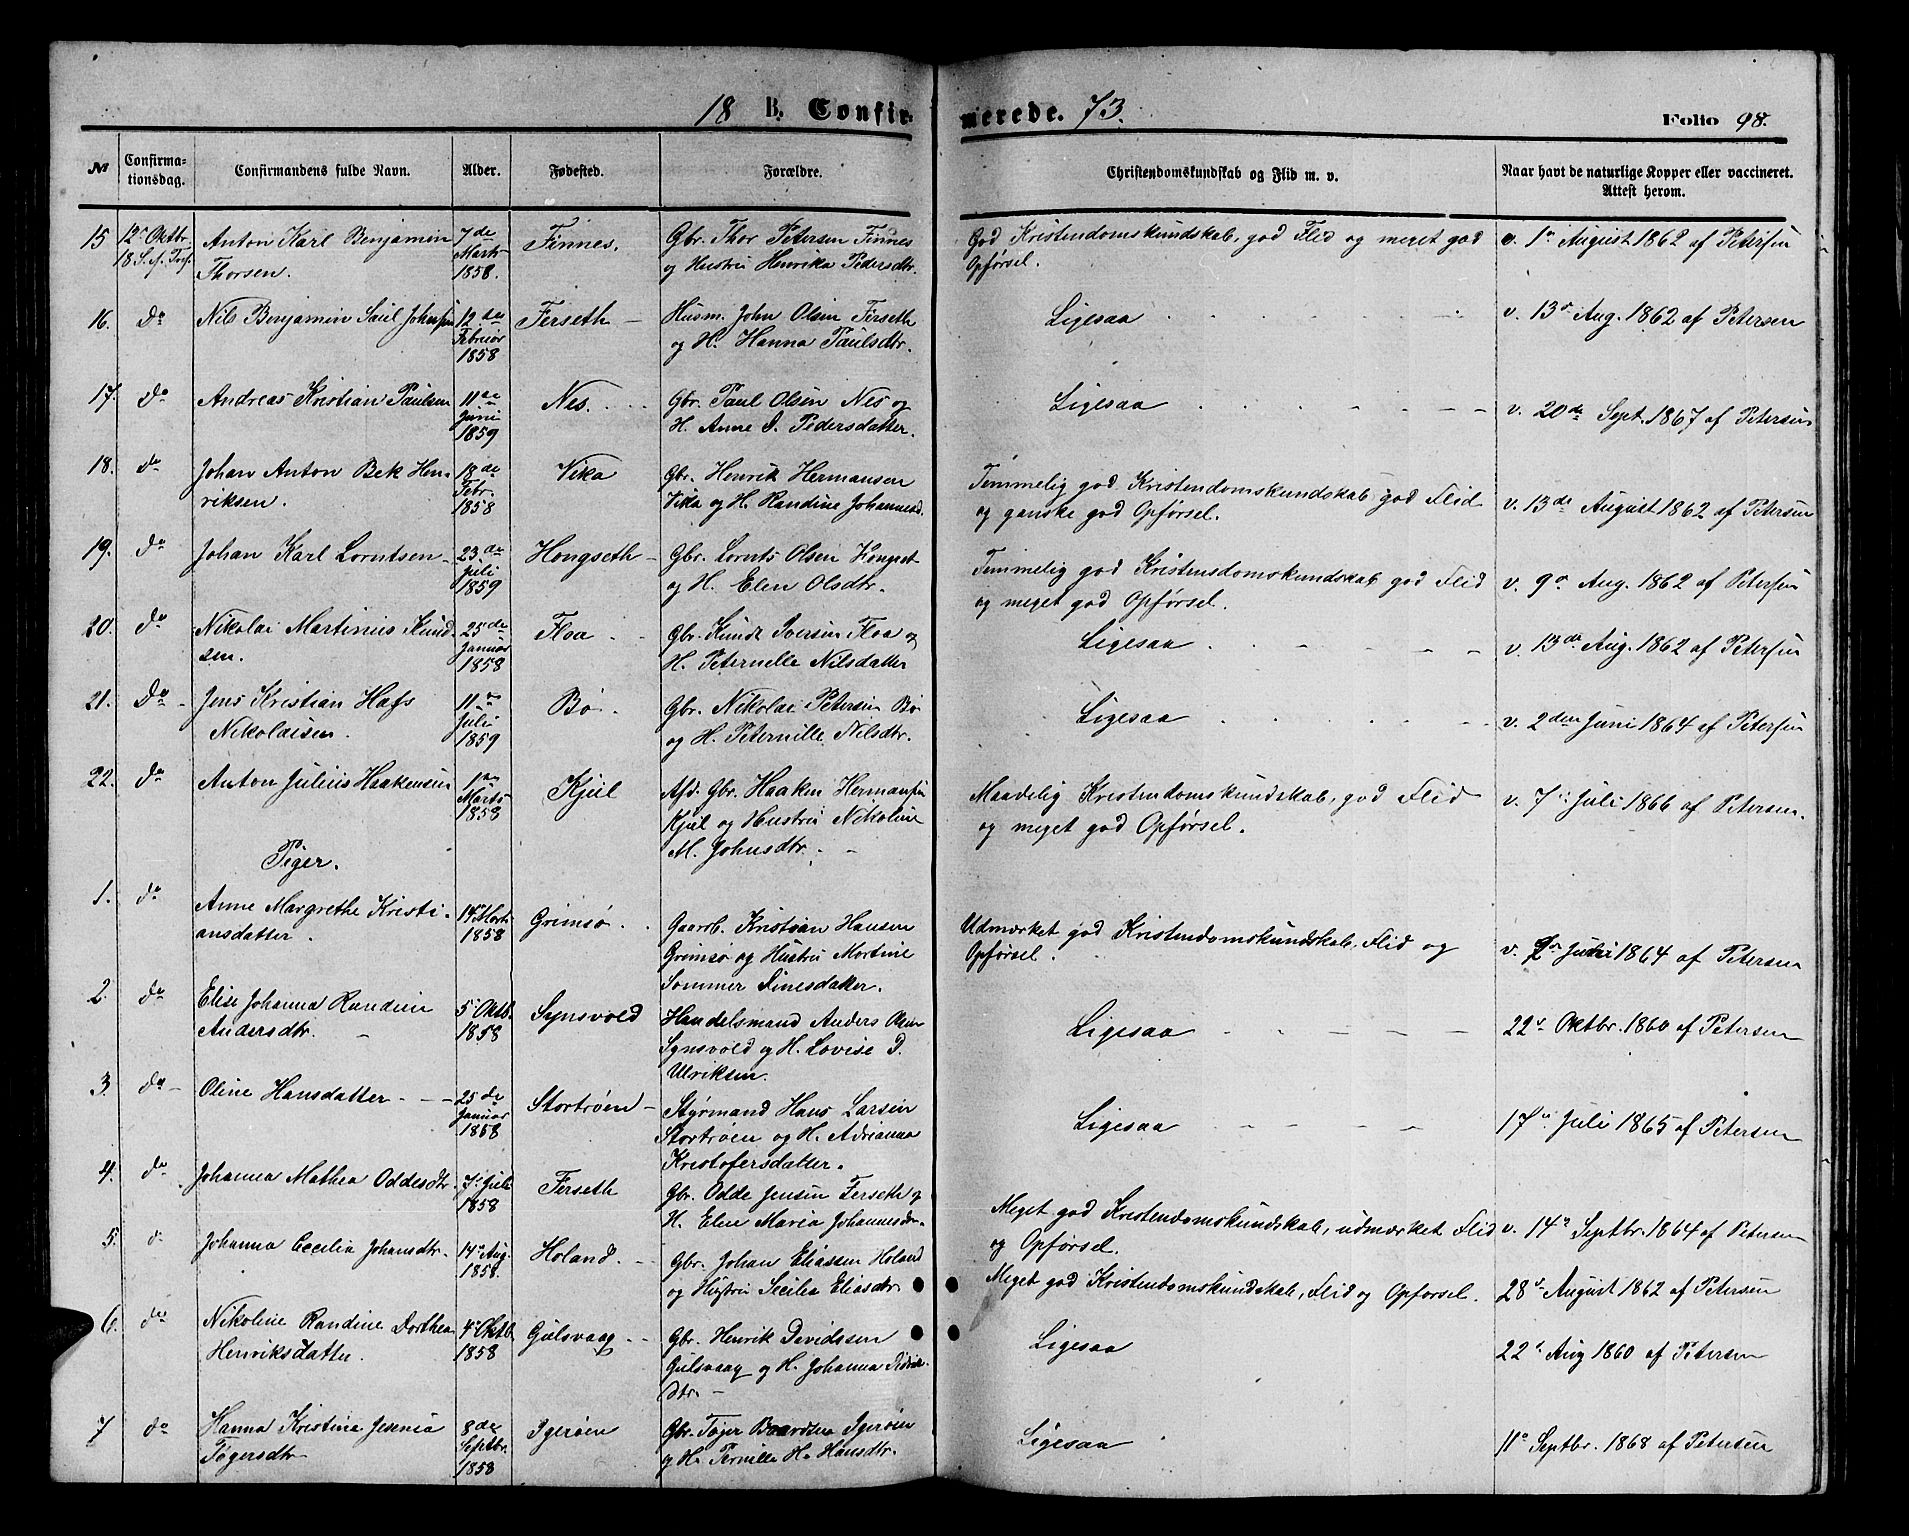 18 B. Confirmerede. 73. Folio 98.
№ Confirmationsdag. Confirmandens fulde Navn. Alder. Fødested. Forældre. Christendomskundskab og Flid m. v. Naar havt de naturlige Kopper eller vaccineret. Attest herom.
15 12te Oktbr. 18 S. e. Tref. Anton Karl Benjamin Thorsen. 7de Marts 1858. Finnes. Gbr. Thor Petersen Finnes og Hustru Henrika Pedersdtr. God Kristendomskundskab, god Flid og meget god Opførsel. v. 1a August 1862 af Petersen
16. Do Nils Benjamin Saul Johnsen 12te Februar 1858 Ferseth Husm. John Olsen Ferseth og H. Hanna Paulsdtr. Ligesaa v. 13a Aug. 1862 af Petersen
17. do Andreas Kristian Paulsen 11te Juni 1859 Nes. Gbr. Paul Olsen Nes og H. Anne D. Pedersdatter. Ligesaa v. 20de Sept. 1867 af Petersen
18. do Johan Anton Bek Henriksen. 13de Febr. 1858 Vika Gbr. Henrik Hermansen Vika og H. Randine Johannesd. Temmelig god Kristendomskundskab, god Flid og ganske god Opførsel. v. 13de August 1862 af Petersen
19. do Johan Karl Lorntsen 23de Juli 1859 Hongseth Gbr. Lornts Olsen Hongset og H. Elen Olsdtr. Temmelig god Kristendomskundskab god Flid og meget god Opførsel. v. 9a Aug. 1862 af Petersen
20. do Nikolai Martinus Kundsen. 25de Januar 1858 Floa Gbr. Kundt Iversen Floa og H. Peternelle Nilsdatter Ligesaa v. 13de Aug. 1862 af Petersen
21. Do Jens Kristian Hass Nikolaisen. 11te Juli 1859 Bø. Gbr. Nikolai Petersen Bø og H. Peternille Nilsdtr. Ligesaa v. 2den Juni 1864 af Petersen
22. do Anton Julius Haakensen 1ste Marts 1858 Kjul Afd. Gbr. Haaken Hermansen Kjul og Hustru Nikoline M. Johnsdtr. Maadelig Kristendomskundskab, god Flid og meget god Opførsel. v. 7de Juli 1866 af Petersen.
Piger.
1. do Anne Margrethe Kristiansdatter. 14 Marts 1858 Grimsø. Gaardb. Kristian Hansen Grimsø og Hustru Martine Sommer Dinesdatter. Udmærket god Kristendomskundskab, Flid og Opførsel. v. 1864 af Petersen
2. do Elise Johanna Randine Andersdtr. 5 Oktb. 1858 Synsvold Handelsmand Anders Olsen Synsvold og H. Lovise D. Ulriksen. Ligesaa 22de Oktbr. 1860 af Petersen
3. do Oline Hansdatter 25de Januar 1858 Stortrøen Styrmand Hans Larsen Stortrøen og H. Adrianna Kristofersdatter. Ligesaa 17de Juli 1865 af Petersen
4. do Johanna Mathea Oddesdtr. 7 Juli 1858 Ferseth Gbr. Odde Jensen Ferseth og H. Elen Maria Johannesdr. Meget god Kristendomskundskab, udmærket Flid og Opførsel. v. 14a Septbr. 1864 af Petersen
5. d. Johanna Cecilia Johansdtr. 14 Aug. 1858. Holand. Gbr. Johan Eliassen Holand og Hustru Secilia Eliasdtr. Meget god Kristendomskundskab, Flid og Opførsel. 28de August 1862 af Petersen
6. do Nikoline Randine Dorthea Henriksdatter 4 Oktb. 1858 Gulsvaag Gbr. Henrik Davidssen Gulsvaag og H. Johanna Ligesaa 22de Aug 1860 af Petersen
7 do Hanna Kristina Jesenia Tøgersdtr 8de Septbr. 1858 Igerøen Gbr. Tøger Baardsen Igerøen og H. Pernille H. Hansdtr. Ligesaa 11a Septbr. 1868 af Petersen